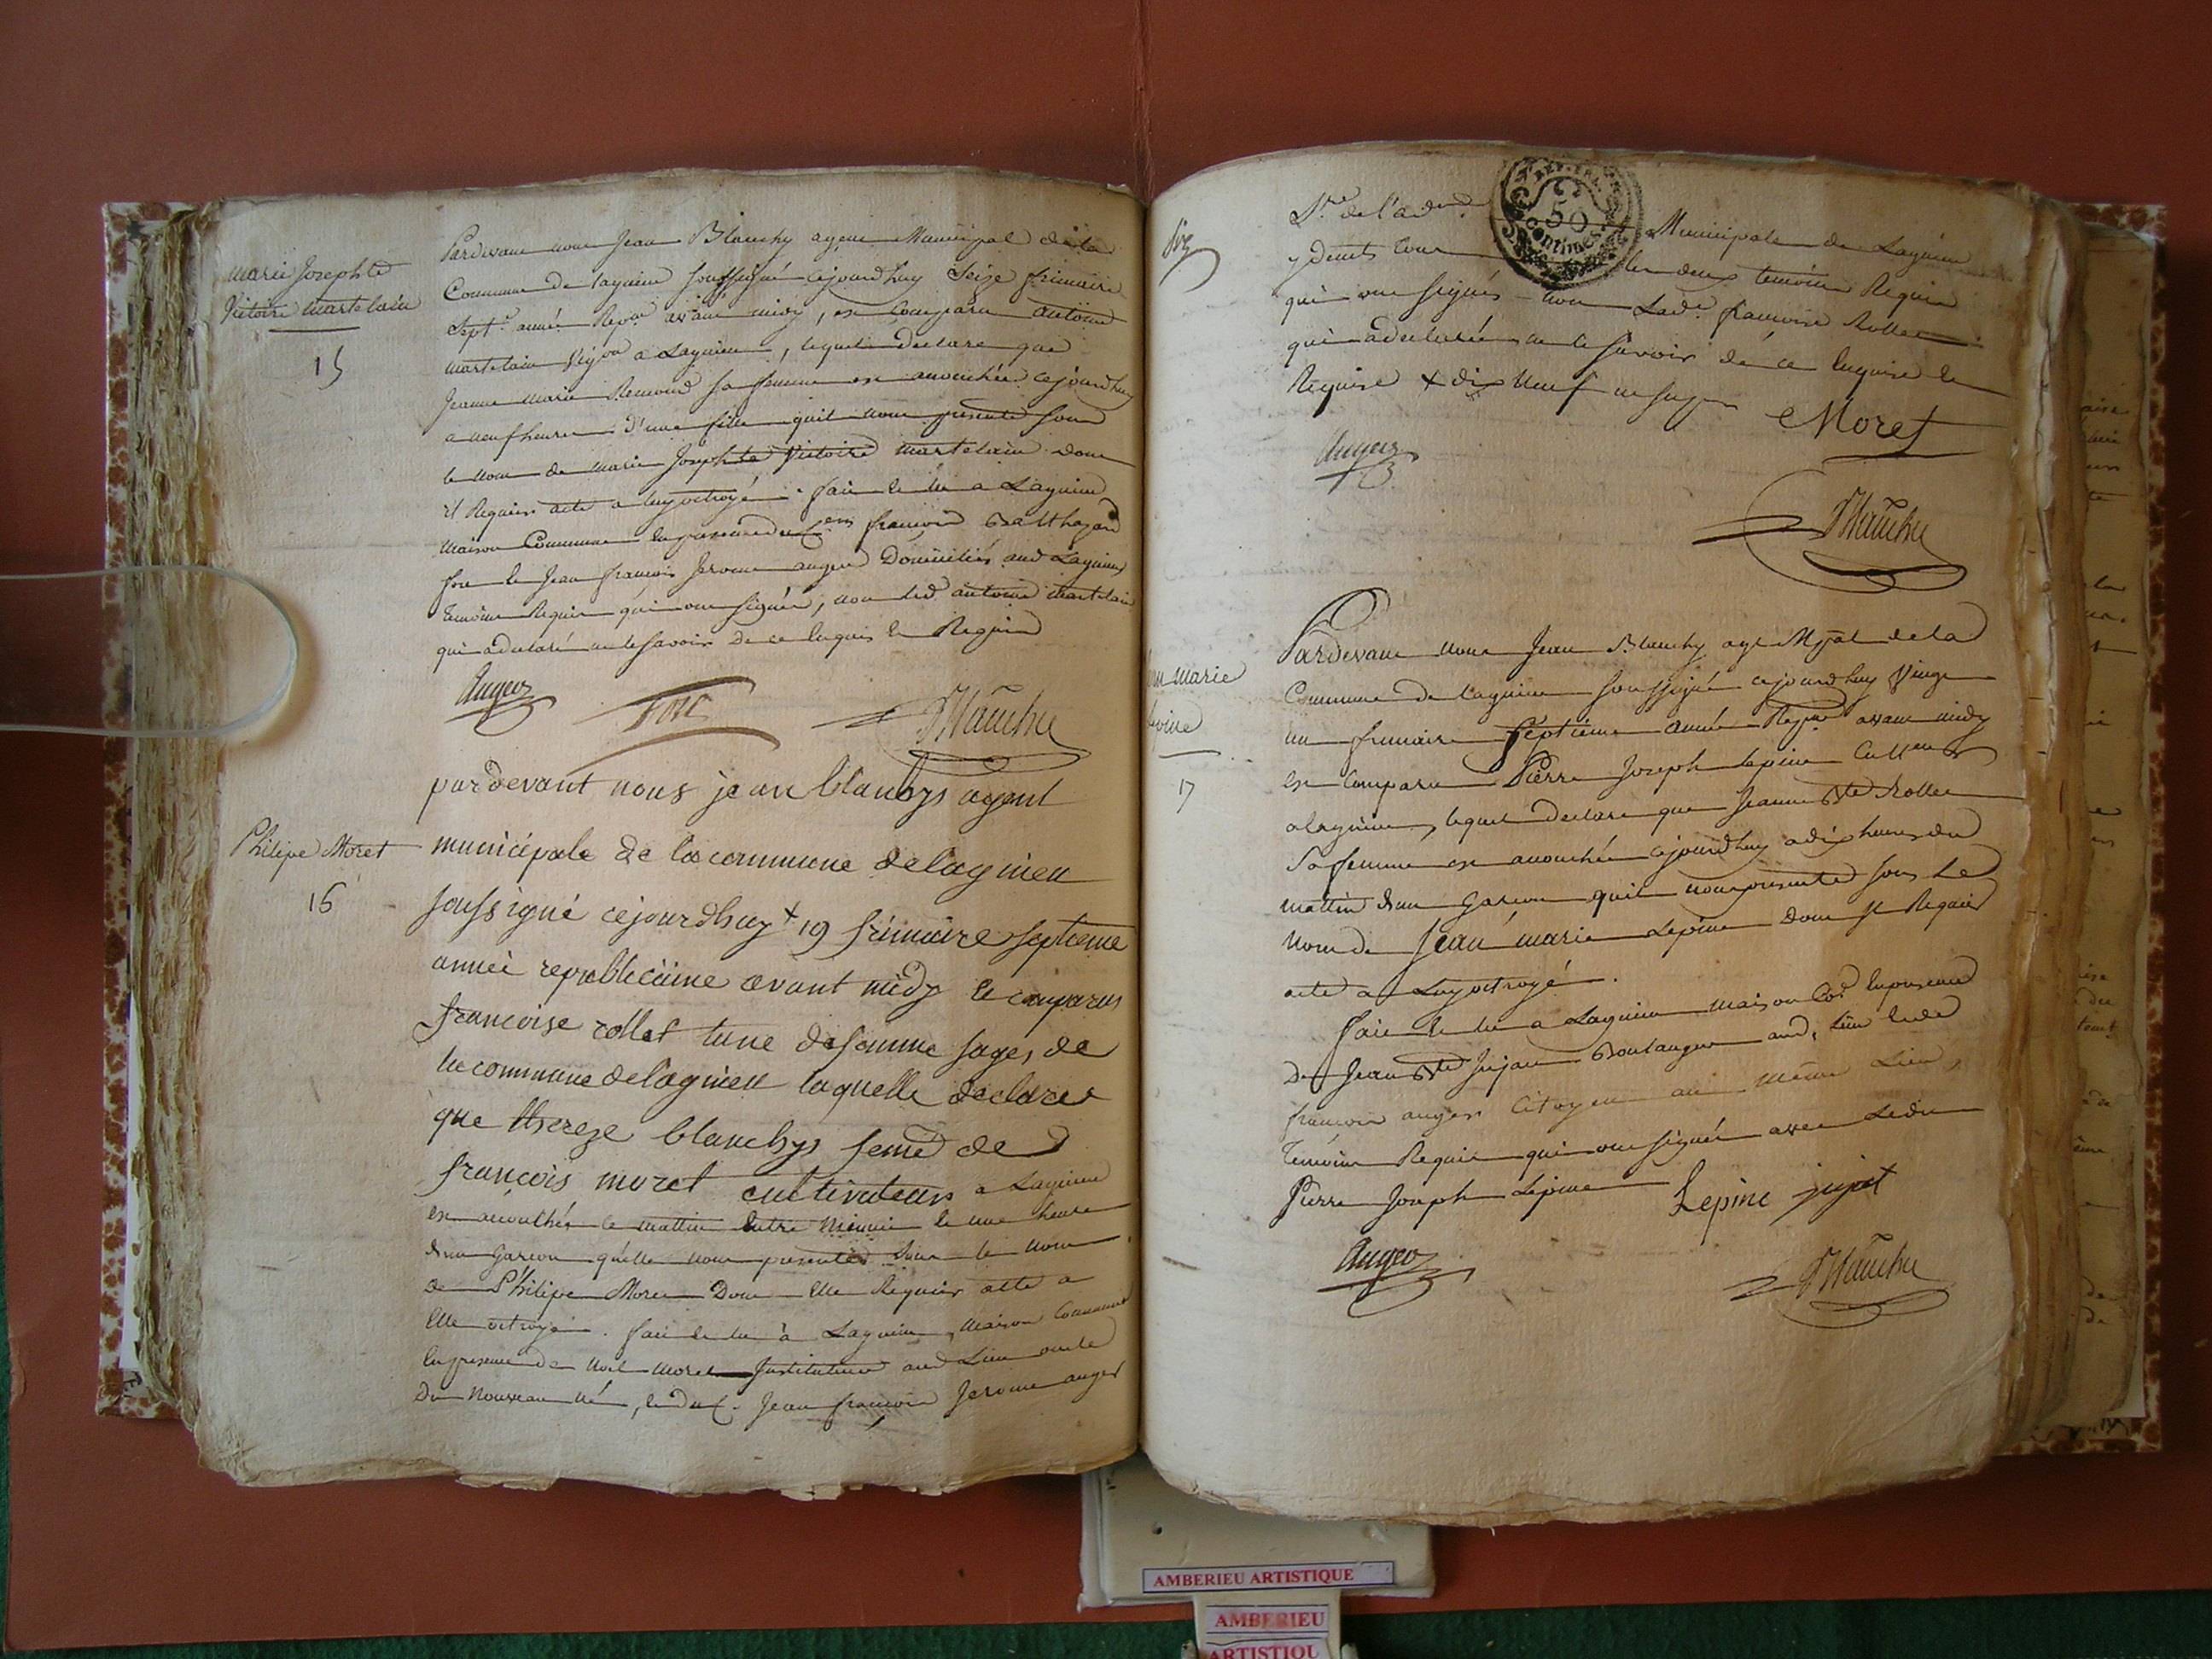 marie Josephte
Victoire martelain
15
Pardevant nous Jean Blanchy agent Municipal de la
Commune de lagnieu soussigné cejourdhuy Seize frimaire
sept.e année Repne avant midy, est Comparu antoine
martelain Vigon a Lagnieu, lequel declare que
Jeanne marie Remond sa femme est accouchée cejourdhuy
a neuf heures d'une fille quil nous presente sous
le nom de marie Josephte Victoire martelain dont
il Requier acte a luy octroyé. fait et lu a Lagnieu
maison Commune en presence de françois Balthazard
fore et Jean françois Jerome auger Domiciliés aud Lagnieu
temoins Requis qui ont signés, non led antoine martelain
qui a declaré ne le savoir de ce enquis et Requis
Auger
fore
JBlanchy
Philipe Moret
16
pardevant nous jean blanchys agent
municipale de la commune de lagnieu
soussigné cejourdhuy + 19 frimaire septieme
année republicaine avant midy et comparus
francoise rollet lune de famme sages de
la commune de lagnieu laquelle declare
que thereze blanchys feme de
françois moret cultivateurs a Lagnieu
est accouchée ce mattin Entre minuit et une heure
dun Garcon quelle nous presente sous le nom
de Philipe Moret Dont Elle Requier atte a
Elle octroyé. fait et lu à Lagnieu maison Commune
En presence de Moret Instituteur aud Lieu oncle
Du nouveau né, et du C. Jean françois Jerome auger
dix
S.re de l'adm.on Municipale de Lagnieu
y demts tous les deux temoins Requis
qui ont signés non Lad.e francoise Rollet
qui a declarée ne le savoir de ce Enquise et
Requise + dix neuf
Moret
Auger
JBlanchy
marie
Lepine
17
Pardevant nous Jean Blanchy agt Mpal de la
Commune de lagnieu soussigné cejourdhuy Vingt
un frimaire septieme année Repne avant midy
est Comparu Pierre Joseph Lepine Cultr
a lagnieu, lequel declare que Jeanne Bte Rollet
Sa femme est accouchée cejourdhuy a dix heures du
mattin dun Garcon quil nous presente sous Le
nom de Jean marie Lepine Dont Il Requier
acte a Luy octroyé.
fait et lu a Lagnieu maison Coe En presence
De Jean Bte Jujat Boulanger aud. Lieu et de
francois auger Citoyen au même Lieu,
Temoins Requis qui ont signés avec Ledit
Pierre Joseph Lepine
Lepine
jujat
Auger
JBlanchy
REP. FRA.
50
Centimes
AMBERIEU ARTISTIQUE
AMBERIEU
ARTISTIQU